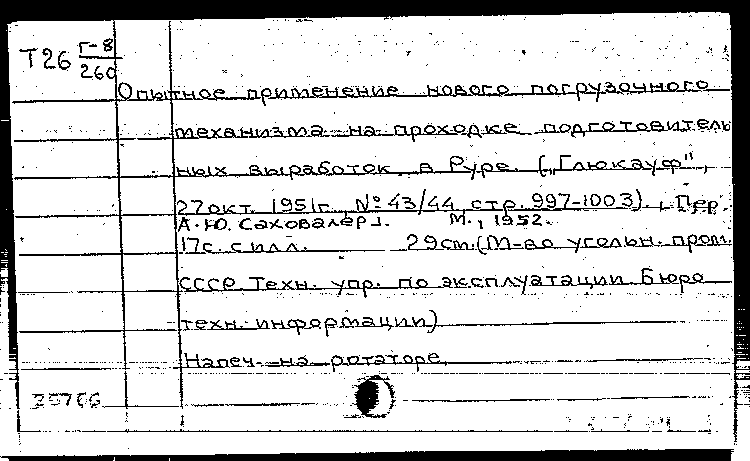 Т26 Г-8
260
Опытное применение нового погрузочного
механизма на проходке подготовитель
ных выработок в Руре. („Глюкауф",
27 окт. 1951г. № 43/44, стр. 997-1003). Пер.
А. Ю. Саховалер]. М., 1952.
17с. с илл. 29см. (М-во угольн. пром.
СССР. Техн. упр. по эксплуатации. Бюро
техн. информации)
Напеч. на ротаторе.